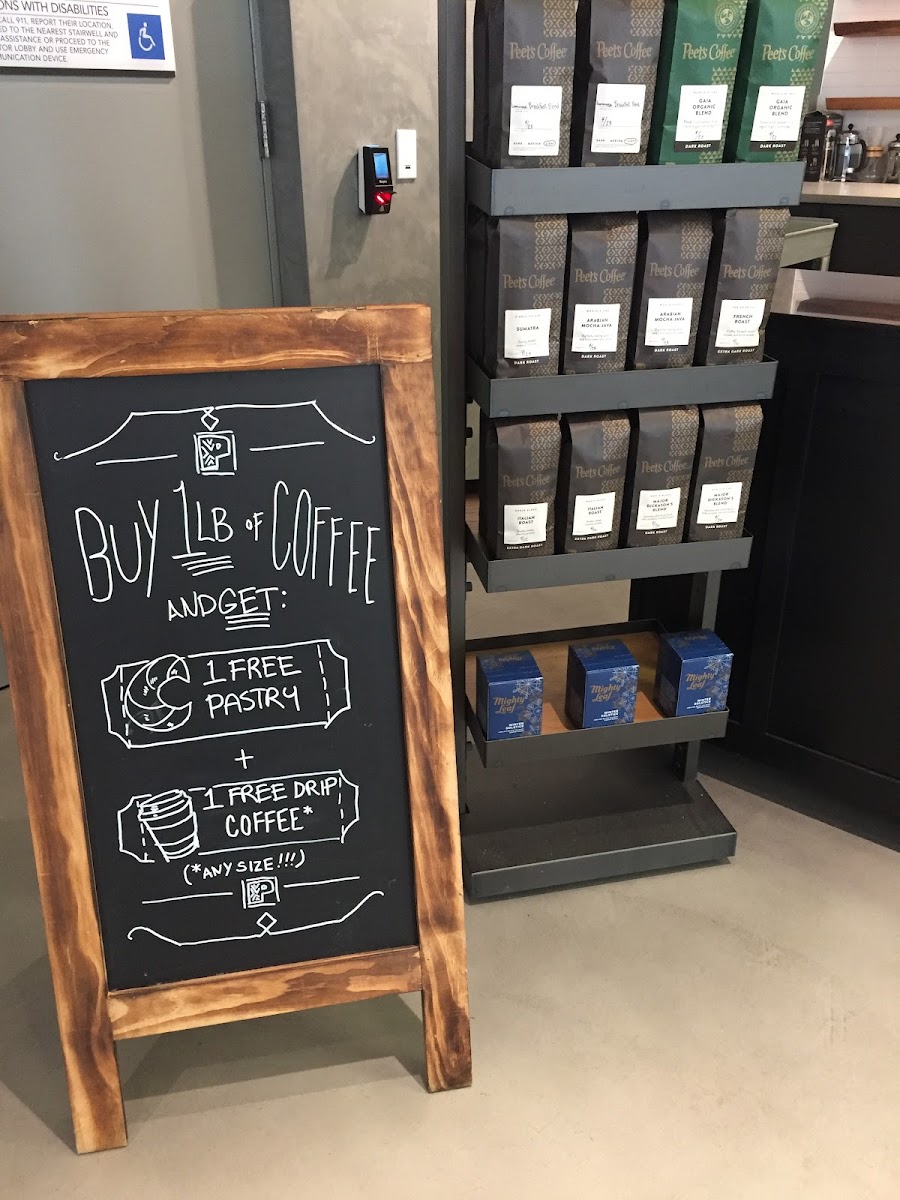 ONS WITH DISABILITIES
CALL 911, REPORT THEIR LOCATION,
ED TO THE NEAREST STAIRWELL AND
ASSISTANCE OR PROCEED TO THE
TOR LOBBY AND USE EMERGENCY
MUNICATION DEVICE.
BUY 1LB OF COFFEE
AND GET:
1 FREE
PASTRY
+
1 FREE DRIP
COFFEE*
(*ANY SIZE!!!)
P
Peet's Coffee
Breakfast Blend
Peet's Coffee
Breakfast Blend
Peet's Coffee
GAIA
ORGANIC
BLEND
DARK ROAST
Peet's Coffee
GAIA
ORGANIC
BLEND
DARK ROAST
Peet's Coffee
SUMATRA
DARK ROAST
Peet's Coffee
ARABIAN
MOCHA-JAVA
DARK ROAST
Peet's Coffee
ARABIAN
MOCHA-JAVA
DARK ROAST
Peet's Coffee
FRENCH
ROAST
EXTRA DARK ROAST
Peet's Coffee
ITALIAN
ROAST
EXTRA DARK ROAST
Peet's Coffee
ITALIAN
ROAST
EXTRA DARK ROAST
Peet's Coffee
MAJOR
DICKASON'S
BLEND
DARK ROAST
Peet's Coffee
MAJOR
DICKASON'S
BLEND
DARK ROAST
Mighty
Leaf
WINTER
SOLSTICE
Mighty
Leaf
WINTER
SOLSTICE
Mighty
Leaf
WINTER
SOLSTICE